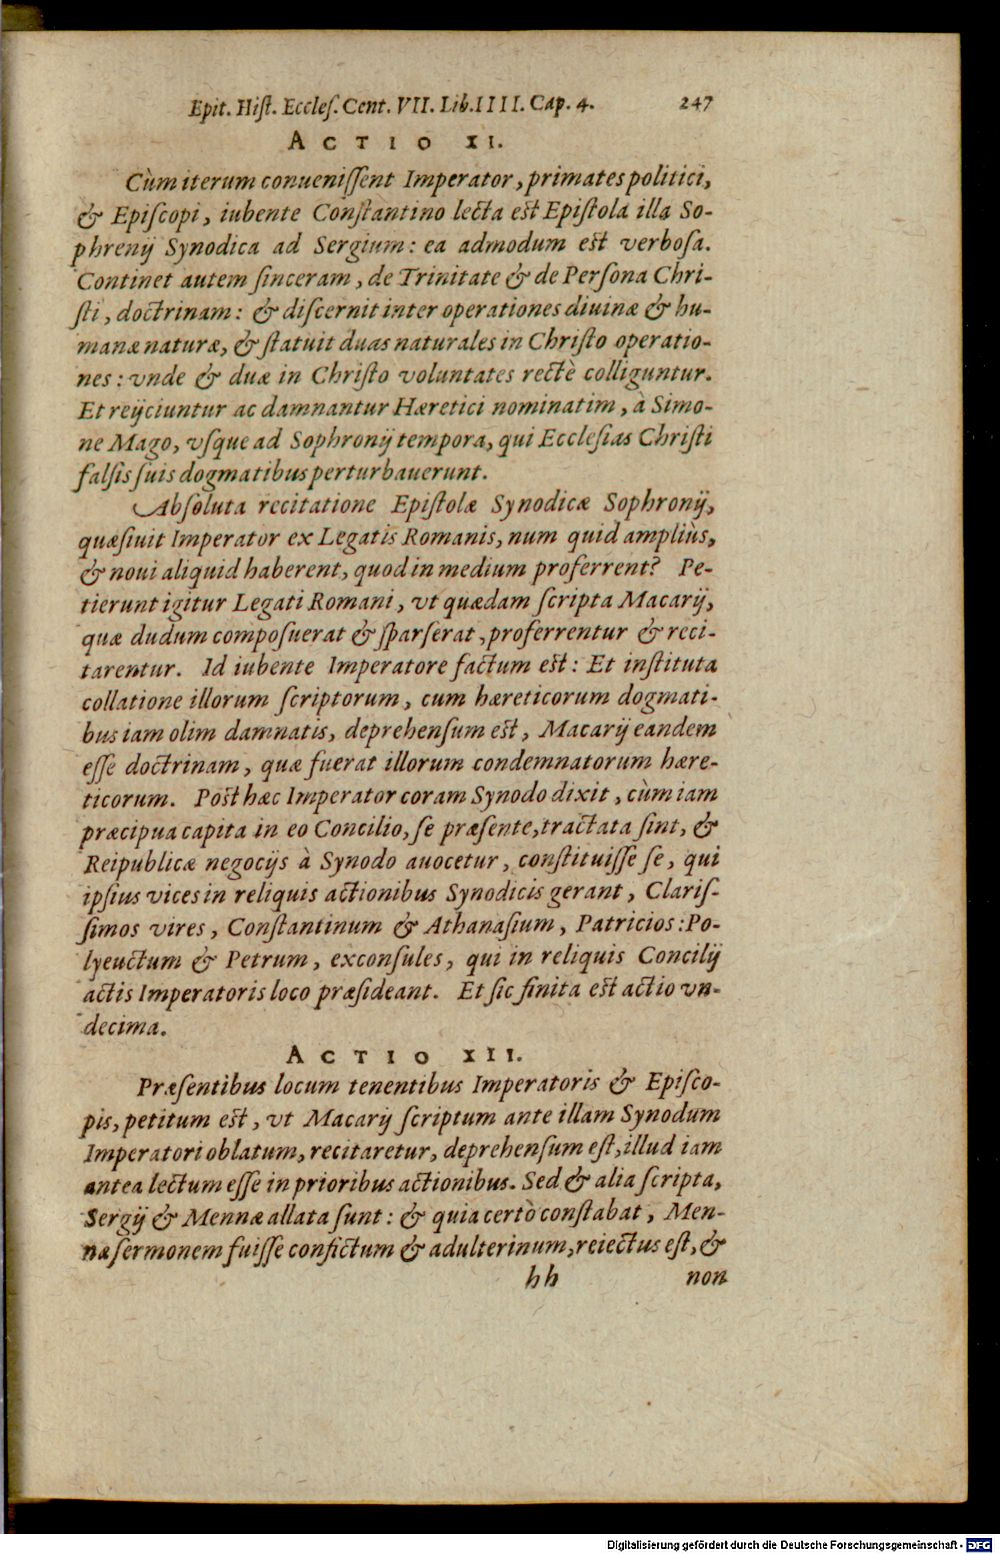 Epit. Hiſt. Eccleſ. Cent. VII. Lib. IIII. Cap. 4. 247
ACTIO XI.
Cùm iterum conueniſſent Imperator, primates politici,
& Epiſcopi, iubente Conſtantino lecta eſt Epiſtola illa So-
phrenij Synodica ad Sergium: ea admodum eſt verboſa.
Continet autem ſinceram, de Trinitate & de Perſona Chri-
ſti, doctrinam: & diſcernit inter operationes diuinæ & hu-
manæ naturæ, & ſtatuit duas naturales in Chriſto operatio-
nes: vnde & duæ in Chriſto voluntates rectè colliguntur.
Et reijciuntur ac damnantur Hæretici nominatim, à Simo-
ne Mago, vſque ad Sophronij tempora, qui Eccleſias Chriſti
falſis ſuis dogmatibus perturbauerunt.
Abſoluta recitatione Epiſtolæ Synodicæ Sophronij,
quæſiuit Imperator ex Legatis Romanis, num quid ampliùs,
& noui aliquid haberent, quod in medium proferrent? Pe-
tierunt igitur Legati Romani, vt quædam ſcripta Macarij,
quæ dudum compoſuerat & ſparſerat, proferrentur & reci-
tarentur. Id iubente Imperatore factum eſt: Et inſtituta
collatione illorum ſcriptorum, cum hæreticorum dogmati-
bus iam olim damnatis, deprehenſum eſt, Macarij eandem
eſſe doctrinam, quæ fuerat illorum condemnatorum hære-
ticorum. Poſt hæc Imperator coram Synodo dixit, cùm iam
præcipua capita in eo Concilio, ſe præſente, tractata ſint, &
Reipublicæ negocijs à Synodo auocetur, conſtituiſſe ſe, qui
ipſius vices in reliquis actionibus Synodicis gerant, Clariſ-
ſimos vires, Conſtantinum & Athanaſium, Patricios: Po-
lyeuctum & Petrum, exconſules, qui in reliquis Concilij
actis Imperatoris loco præſideant. Et ſic finita eſt actio vn-
decima.
ACTIO XII.
Præſentibus locum tenentibus Imperatoris & Epiſco-
pis, petitum eſt, vt Macarij ſcriptum ante illam Synodum
Imperatori oblatum, recitaretur, deprehenſum eſt, illud iam
antea lectum eſſe in prioribus actionibus. Sed & alia ſcripta,
Sergij & Mennæ allata ſunt: & quia certò conſtabat, Men-
næ ſermonem fuiſſe confictum & adulterinum, reiectus eſt, &
hh non
Digitalisierung gefördert durch die Deutsche Forschungsgemeinschaft - DFG